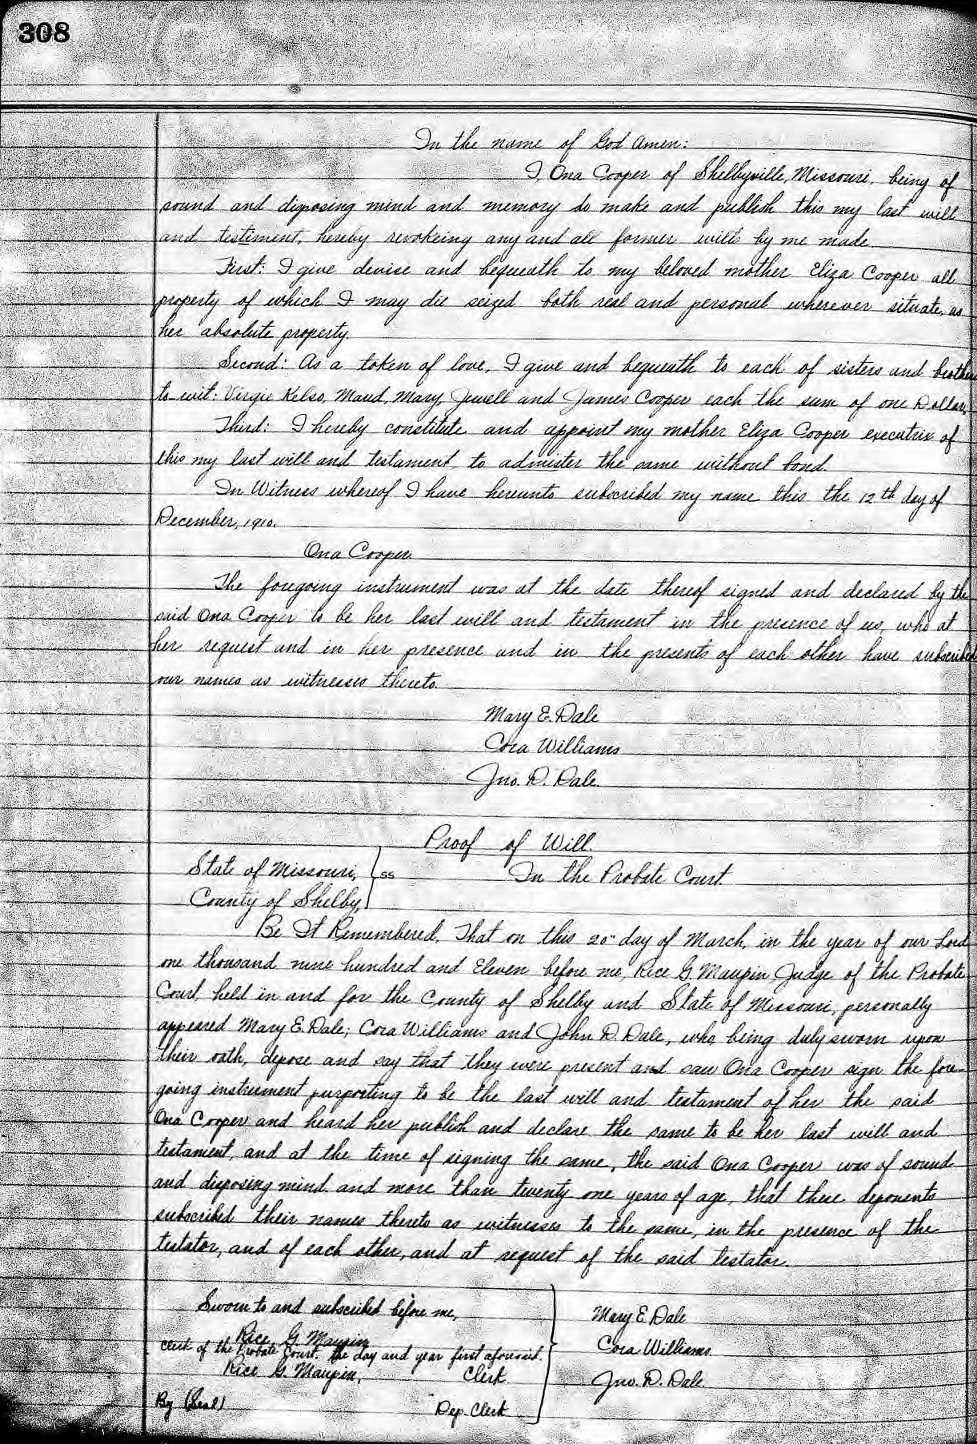 308
In the name of God Amen:
I, Ona Cooper of Shelbyville, Missouri, being of
sound and disposing mind and memory do make and publish this my last will
and testiment, hereby revokeing any and all former wills by me made.
First: I give devise and bequeath to my beloved mother Eliza Cooper all
property of which I may die seized both real and personal wherever situate, as
her absolute property.
Second: As a token of love, I give and bequeath to each of sisters and brother
to-wit: Virgie Kelso, Maud, Mary, Jewell and James Cooper each the sum of one Dollar,
Third: I hereby constitute and appoint my mother Eliza Cooper executrix of
this my last will and testament, to admister the same without bond.
In Witness whereof I have hereunto subscribed my name this the 12th day of
December, 1910.
Ona Cooper.
The foregoing instrument was at the date thereof signed and declared by the
said Ona Cooper to be her last will and testament in the presence of us, who at
her request and in her presence and in the presents of each other have subscribed
our names as witnesses thereto.
Mary E. Dale
Cora Williams
Jno. D. Dale.
Proof of Will.
State of Missouri, } ss In the Probate Court.
County of Shelby,
Be It Remembered, That on this 20" day of March, in the year of our Lord
one thousand nine hundred and Eleven before me, Rice G. Maupin Judge of the Probate
Court, held in and for the County of Shelby and State of Missouri, personally
appeared Mary E. Dale; Cora Williams and John D. Dale, who, being duly sworn upon
their oath, depose and say that they were present and saw Ona Cooper sign the fore-
going instrument purporting to be the last will and testament of her the said
Ona Cooper and heard her publish and declare the same to be her last will and
testament, and at the time of signing the same, the said Ona Cooper was of sound
and disposing mind and more than twenty one years of age, that these deponents
subscribed their names thereto as witnesses to the same, in the presence of the
testator, and of each other, and at request of the said testator.
Sworn to and subscribed before me,
Rice G. Maupin
Clerk of the Probate Court. the day and year first aforesaid.
Rice G. Maupin, Clerk
By (Seal) Dep. Clerk
Mary E. Dale
Cora Williams
Jno. D. Dale.